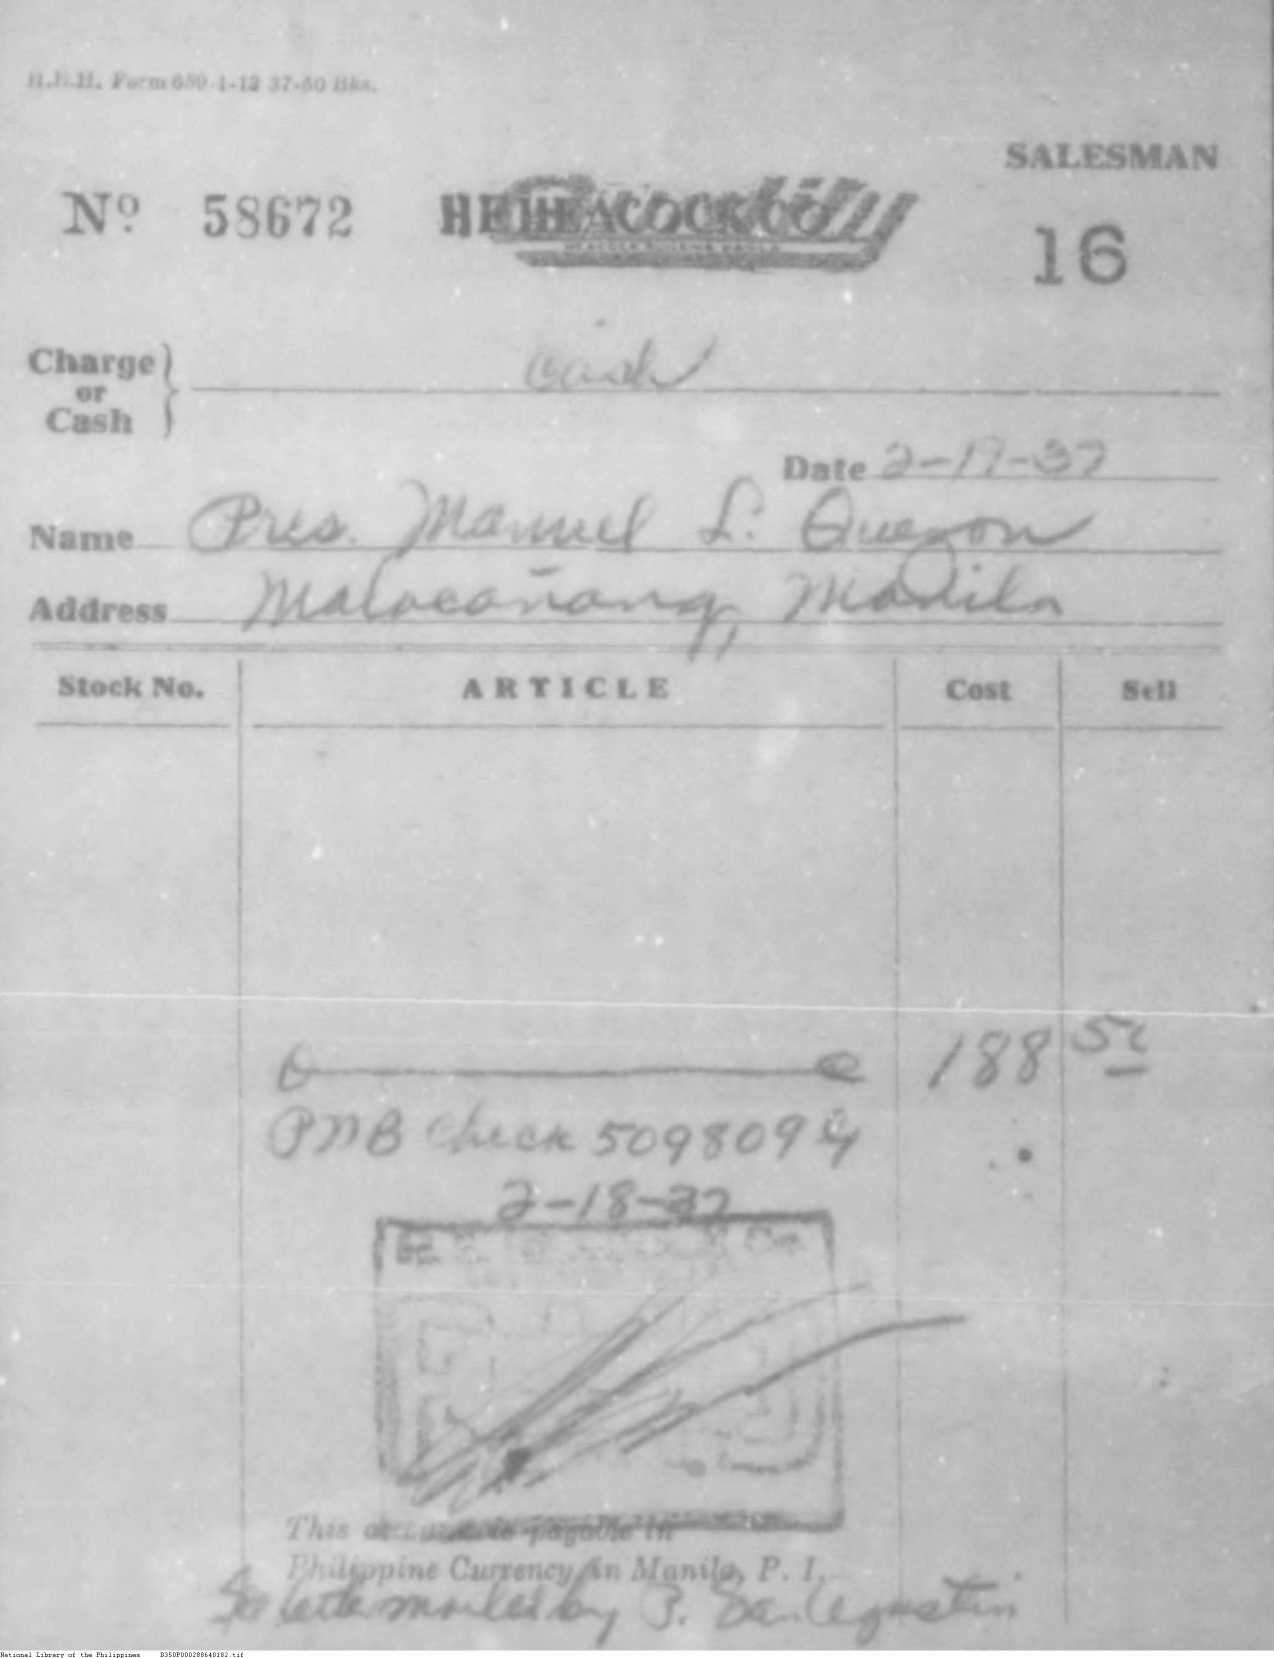 H.E.H. Form 650 1-12 37-50 Bks.
SALESMAN
Nº 58672 HEHEACOCK CO
16
Charge
or
Cash
Cash
Date 2-19-37
Name Pres. Manuel L. Quezon
Address Malacañang, Manila
Stock No. ARTICLE Cost Sell
188 50
PNB Check 509809
2-18-37
This account is payable in
Philippine Currency in Manila, P. I.
See letter mailed by P. San Agustin